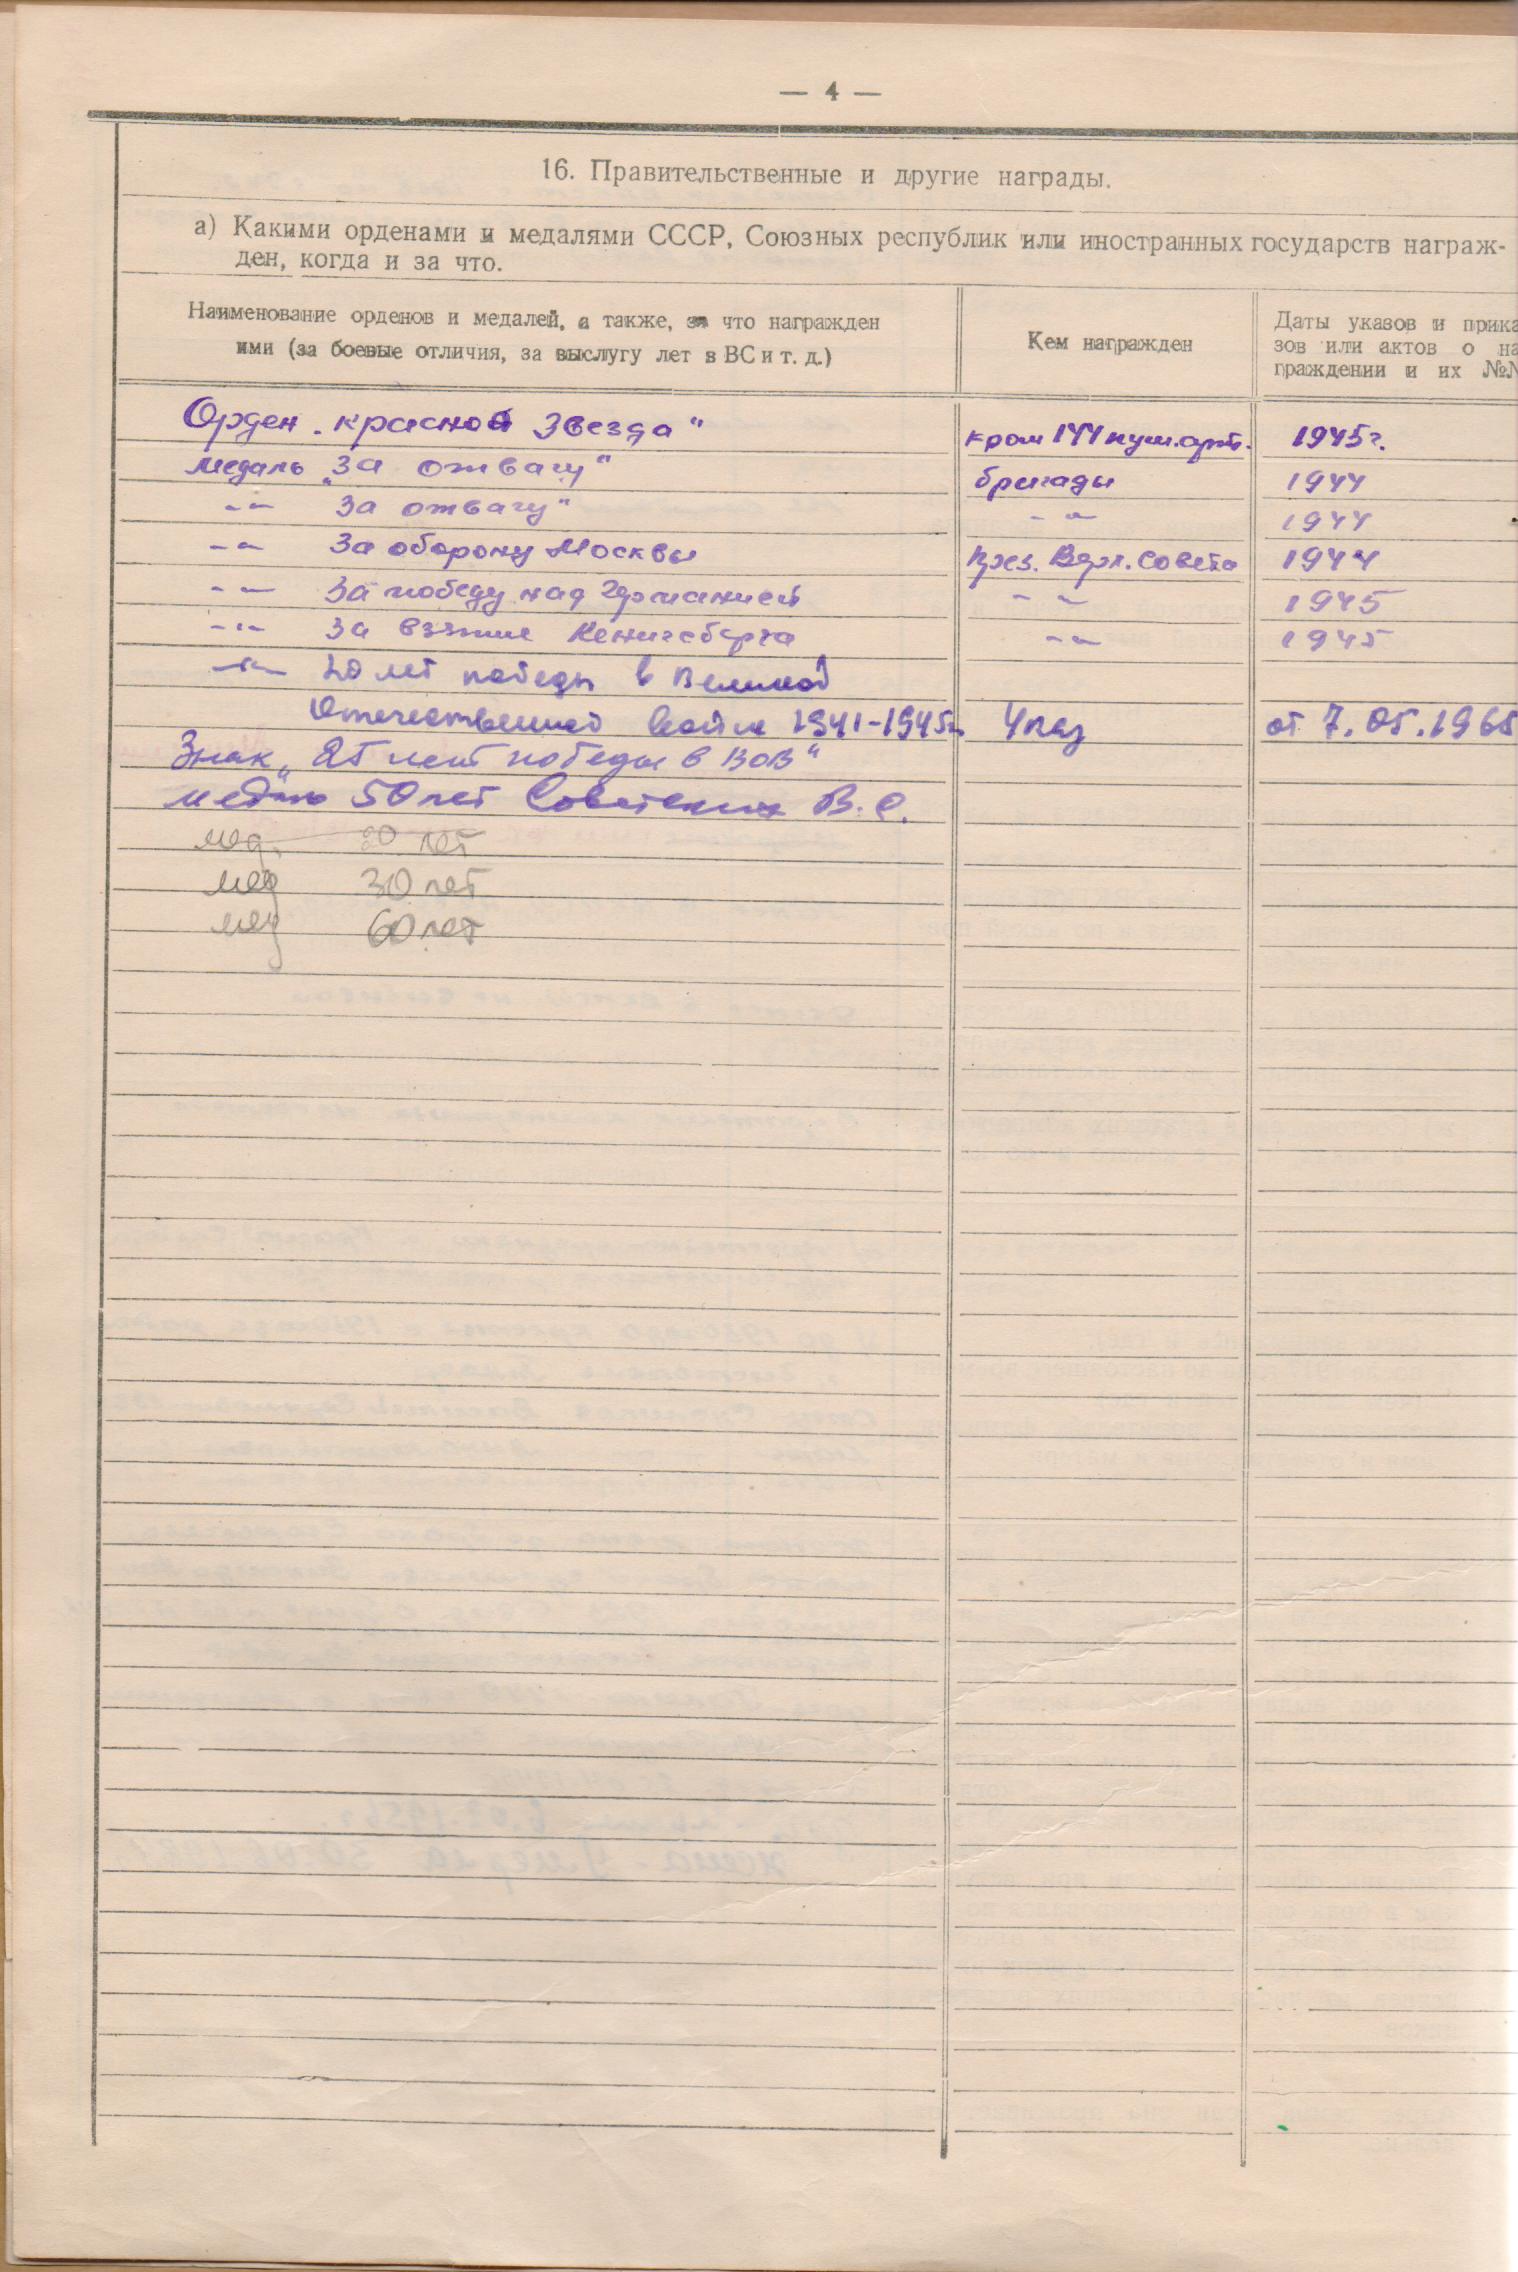 — 4 —
16. Правительственные и другие награды.
а) Какими орденами и медалями СССР, Союзных республик или иностранных государств награж-
ден, когда и за что.
Наименование орденов и медалей, а также, за что награжден
ими (за боевые отличия, за выслугу лет в ВС и т. д.)
Кем награжден
Даты указов и прика
зов или актов о на
граждении и их №№
Орден „красной Звезда" 1945г.
медаль „За отвагу" бригады 1944
-"- За отвагу" -"- 1944
-"- За оборону Москвы През. Верх. Совета 1944
-"- За победу над Германией -"- 1945
-"- За взятие Кенигсберга -"- 1945
-"- 20 лет победы в Великой
Отечественной войне 1941-1945г. Указ от 7.05.1965
Знак „25 лет победы в ВОВ"
медаль 50 лет Советских В.С.
мед. 20 лет
мед 30 лет
мед 60 лет